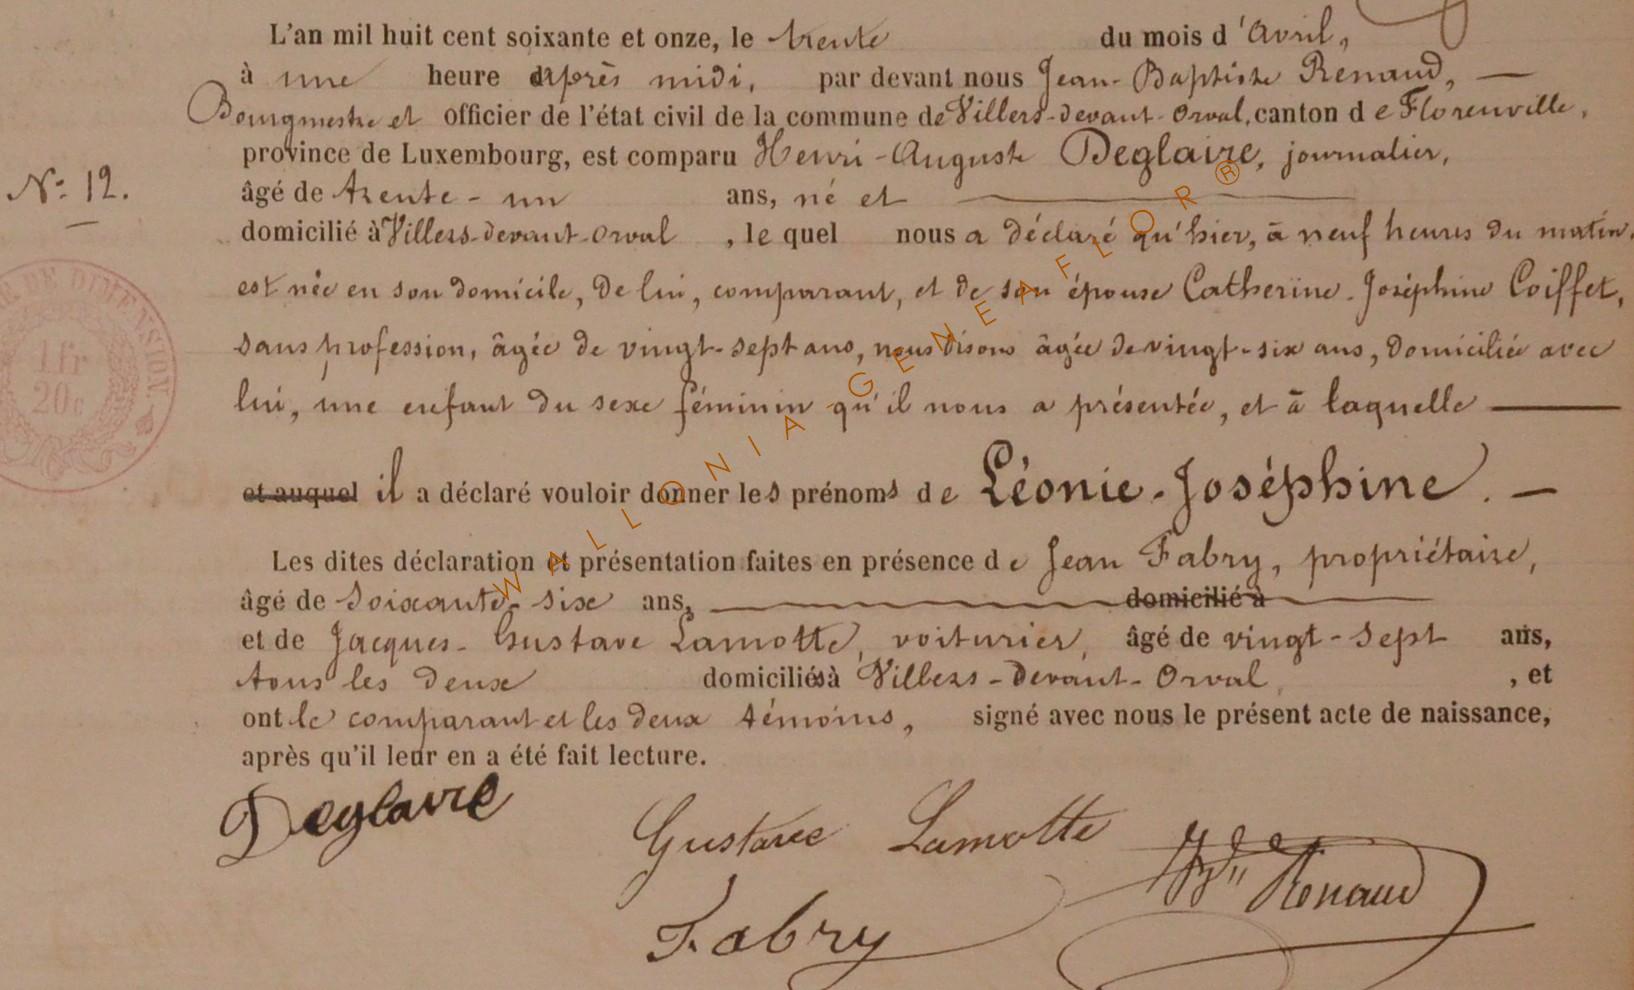 L'an mil huit cent soixante et onze, le trente du mois d'Avril,
à une heure après midi, par devant nous Jean-Baptiste Renaud,
Bourgmestre et officier de l'état civil de la commune de Villers-devant-Orval, canton de Florenville,
province de Luxembourg, est comparu Henri-Auguste Deglaire, journalier,
N: 12.
âgé de trente-un ans, né et
domicilié à Villers-devant-Orval, le quel nous a déclaré qu'hier, à neuf heures du matin,
est née en son domicile, de lui, comparant, et de son épouse Catherine-Joséphine Coiffet,
sans profession, âgée de vingt-sept ans, nous disons âgée de vingt-six ans, domiciliée avec
lui, une enfant du sexe féminin qu'il nous a présentée, et à laquelle
et auquel il a déclaré vouloir donner les prénoms de Léonie-Joséphine.
Les dites déclaration et présentation faites en présence de Jean Fabry, propriétaire,
âgé de soixante-six ans, domicilié à
et de Jacques-Gustave Lamotte, voiturier, âgé de vingt-sept ans,
tous les deux domiciliés à Villers-devant-Orval, et
ont le comparant et les deux témoins, signé avec nous le présent acte de naissance,
après qu'il leur en a été fait lecture.
Deglaire
Gustave Lamotte
Renaud
Fabry
TIMBRE DE DIMENSION.
1 fr
20c
WALLONIA GENEAFLOR ®